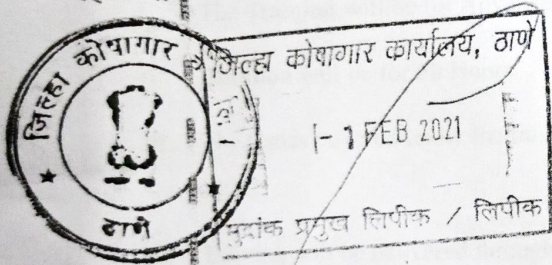 जिल्हा कोषागार
ठाणे
जिल्हा कोषागार कार्यालय, ठाणे
- 1 FEB 2021
मुद्रांक प्रमुख लिपीक / लिपीक